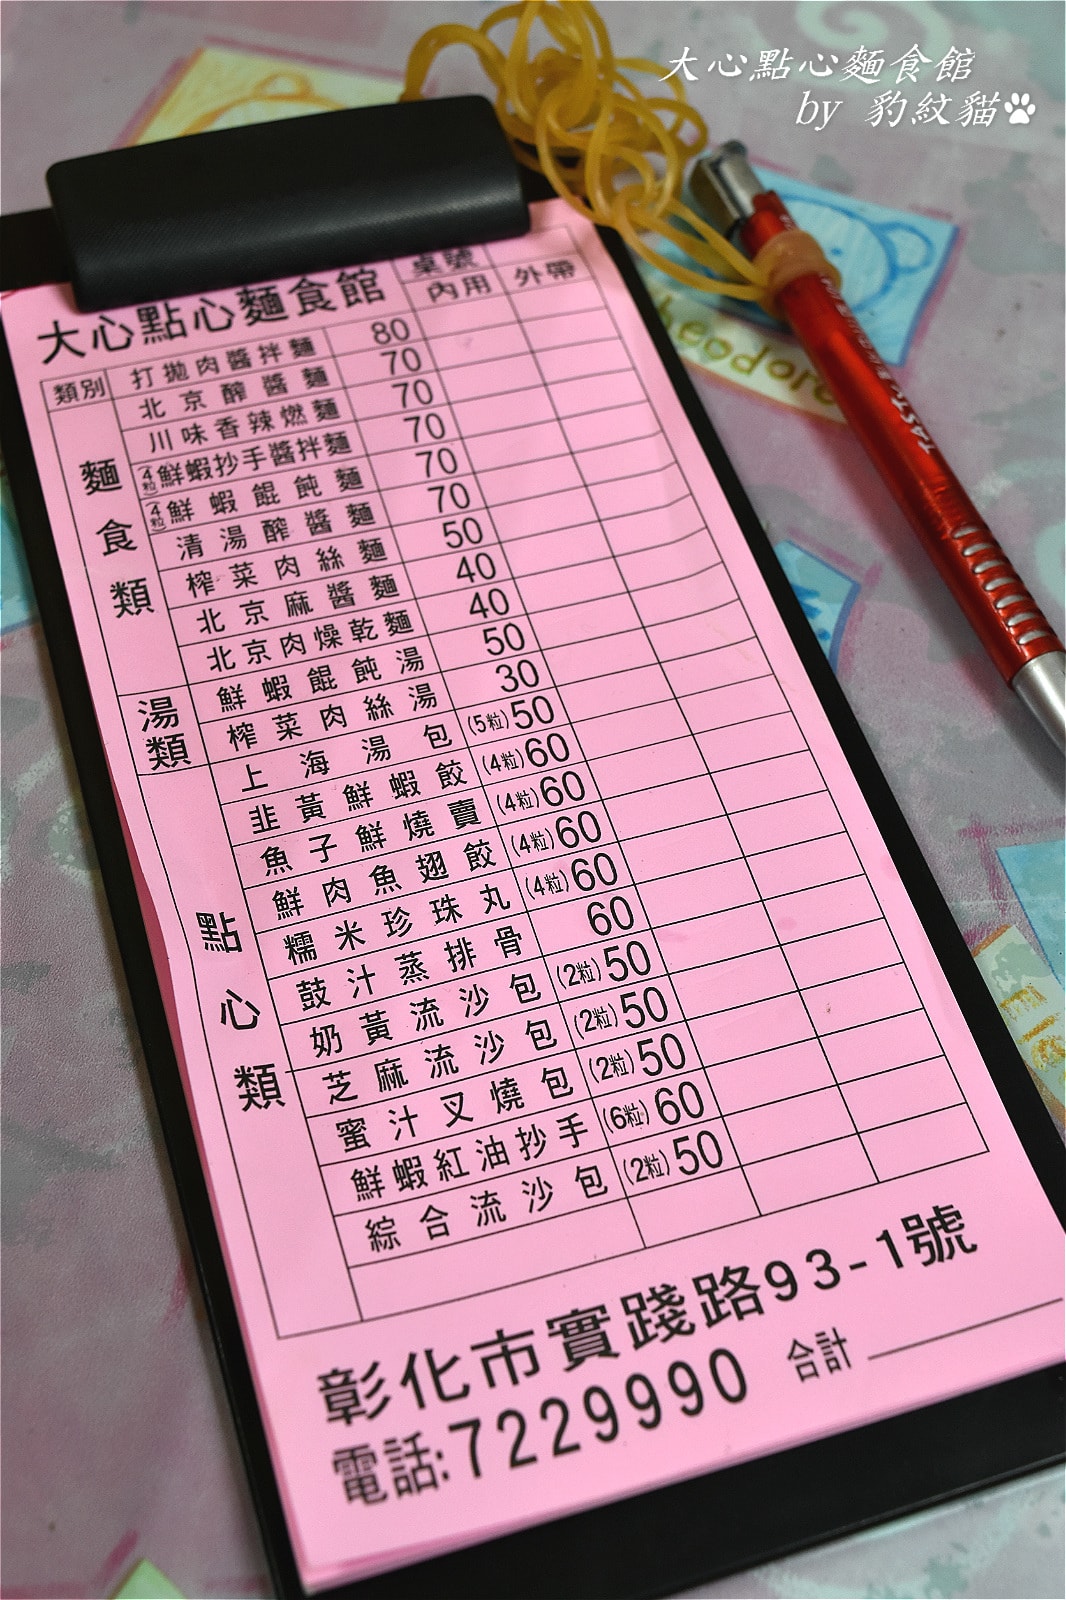 大心點心麵食館
by 豹紋貓
大心點心麵食館
桌號
內用 外帶
類別
麵食類
打拋肉醬拌麵 80
北京醡醬麵 70
川味香辣燃麵 70
(4粒)鮮蝦抄手醬拌麵 70
(4粒)鮮蝦餛飩麵 70
清湯醡醬麵 70
榨菜肉絲麵 50
北京麻醬麵 40
北京肉燥乾麵 40
湯類
鮮蝦餛飩湯 50
榨菜肉絲湯 30
點心類
上海湯包 (5粒)50
韭黃鮮蝦餃 (4粒)60
魚子鮮燒賣 (4粒)60
鮮肉魚翅餃 (4粒)60
糯米珍珠丸 (4粒)60
鼓汁蒸排骨 60
奶黃流沙包 (2粒)50
芝麻流沙包 (2粒)50
蜜汁叉燒包 (2粒)50
鮮蝦紅油抄手 (6粒)60
綜合流沙包 (2粒)50
彰化市實踐路93-1號
電話:7229990 合計